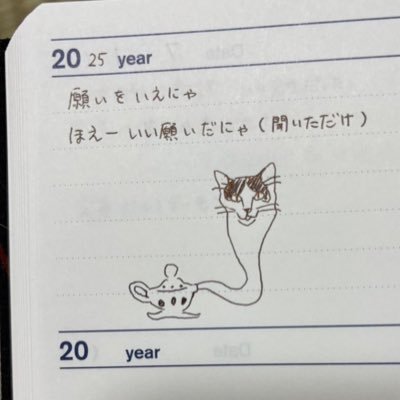 20 25 year
願いをいえにゃ
ほえー いい願いだにゃ(聞いただけ)
20 year